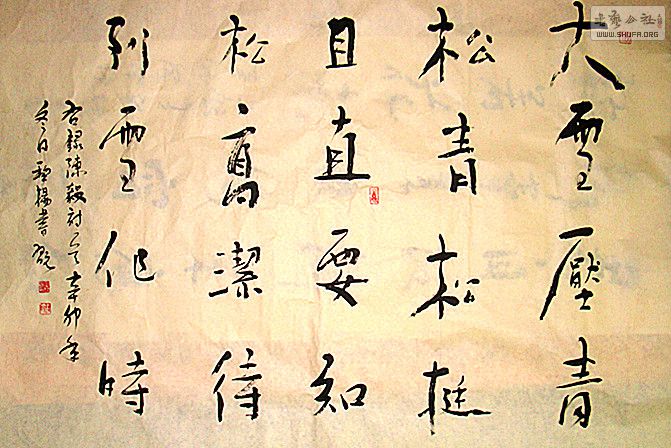 大雪壓青
松青松挺
且直要知
松高潔待
到雪化時
右録陳毅詩 辛卯年
冬日 揚書
書藝公社
WWW.SHUFA.ORG